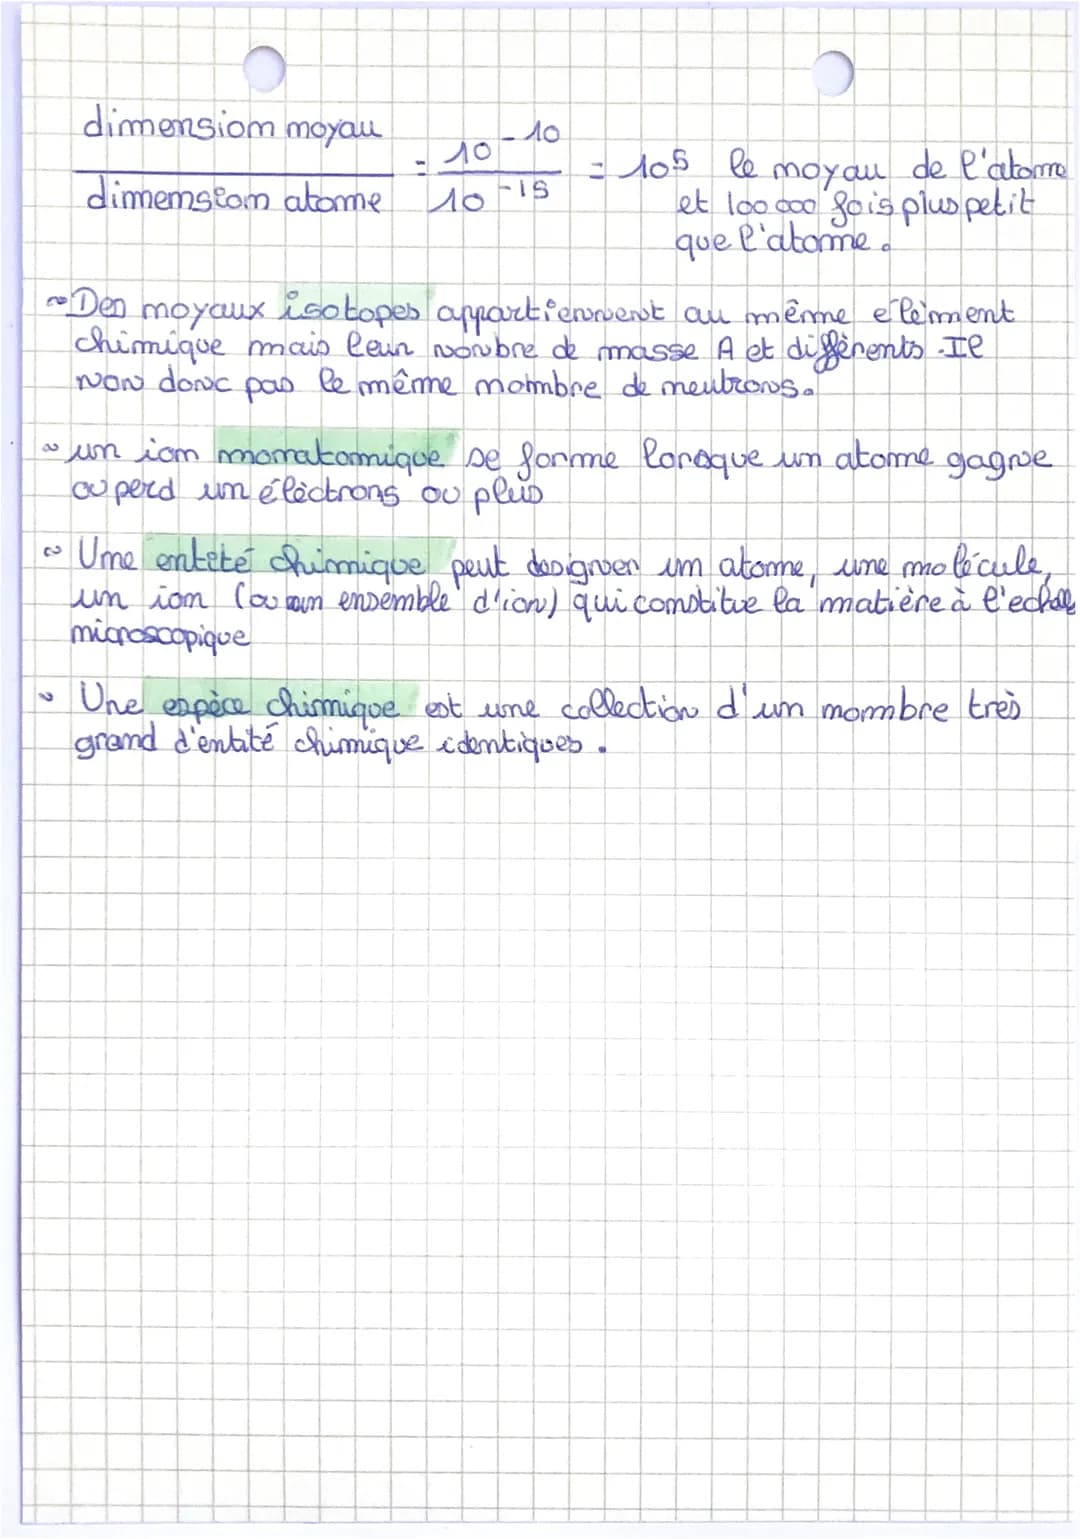 dimension noyau
dimension atome
= 10⁻¹⁰ / 10⁻¹⁵ = 10⁵ le noyau de l'atome
et 100 000 fois plus petit
que l'atome.
~ Des noyaux isotopes appartiennent au même élèment
chimique mais leur nombre de masse A et diffèrents. Il
non donc pas le même nombre de neutrons.
~ un ion monatomique se forme lorsque un atome gagne
ou perd un élèctrons ou plus
~ Une entité chimique peut designer un atome, une molécule,
un ion (ou un ensemble d'ion) qui constitue la matière à l'echelle
microscopique
~ Une espèce chimique est une collection d'un nombre très
grand d'entité chimique identiques.